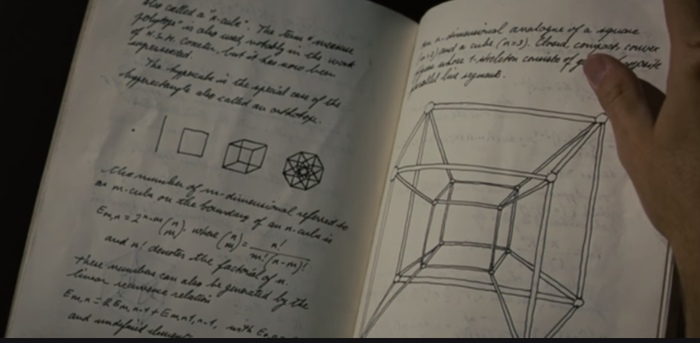 also called a "n-cube". The term "measure
polytope" is also used, notably in the work
of H.S.M. Coxeter, but it has now been
superseded.
The hypercube is the special case of the
hyperrectangle also called an orthotope.
the number of m-dimensional referred to
as m-cube on the boundary of an n-cube is
E m,n = 2^n-m (n m), where (n m) = n! / m!(n-m)!
and n! denotes the factorial of n.
these numbers can also be generated by the
linear recurrence relation
E m,n = 2E m,n-1 + E m-1,n-1, with E
and undefined
n-dimensional analogue of a square
and a cube (n=3). Closed, compact, convex
whose 1-skeleton consists of
parallel line segments.